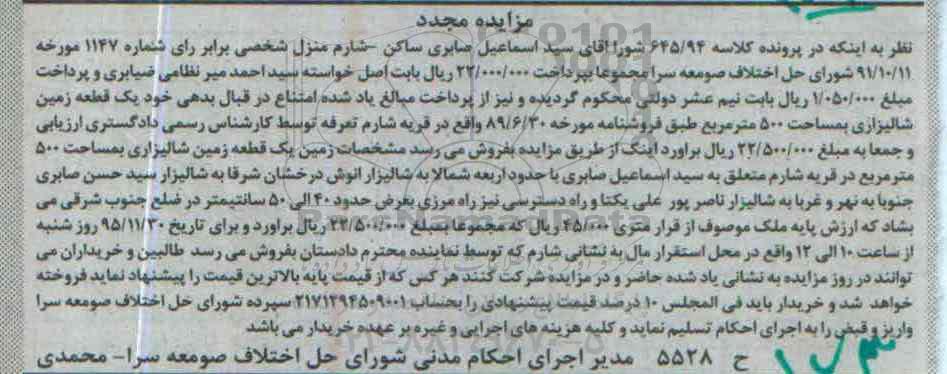 مزایده مجدد
نظر به اینکه در پرونده کلاسه ۶۴۵/۹۴ شورا آقای سید اسماعیل صابری ساکن -شارم منزل شخصی برابر رای شماره ۱۱۴۷ مورخه
۹۱/۱۰/۱۱ شورای حل اختلاف صومعه سرا مجموعا بپرداخت ۲۲/۰۰۰/۰۰۰ ریال بابت اصل خواسته سید احمد میر نظامی ضیابری و پرداخت
مبلغ ۱/۰۵۰/۰۰۰ ریال بابت نیم عشر دولتی محکوم گردیده و نیز از پرداخت مبالغ یاد شده امتناع در قبال بدهی خود یک قطعه زمین
شالیزاری بمساحت ۵۰۰ مترمربع طبق فروشنامه مورخه ۸۹/۶/۳۰ واقع در قریه شارم تعرفه توسط کارشناس رسمی دادگستری ارزیابی
و جمعا به مبلغ ۲۲/۵۰۰/۰۰۰ ریال براورد اینک از طریق مزایده بفروش می رسد مشخصات زمین یک قطعه زمین شالیزاری بمساحت ۵۰۰
متر مربع در قریه شارم متعلق به سید اسماعیل صابری با حدود اربعه شمالا به شالیزار انوش درخشان شرقا به شالیزار سید حسن صابری
جنوبا به نهر و غربا به شالیزار ناصر پور علی یکتا و راه دسترسی نیز راه مرزی بعرض حدود ۴۰ الی ۵۰ سانتیمتر در ضلع جنوب شرقی می
بشاد که ارزش پایه ملک موصوف از قرار متری ۴۵/۰۰۰ ریال که مجموعا بمبلغ ۲۲/۵۰۰/۰۰۰ ریال براورد و برای تاریخ ۹۵/۱۱/۳۰ روز شنبه
از ساعت ۱۰ الی ۱۲ واقع در محل استقرار مال به نشانی شارم که توسط نماینده محترم دادستان بفروش می رسد طالبین و خریداران می
توانند در روز مزایده به نشانی یاد شده حاضر و در مزایده شرکت کنند هر کس که از قیمت پایه بالاترین قیمت را پیشنهاد نماید فروخته
خواهد شد و خریدار باید فی المجلس ۱۰ درصد قیمت پیشنهادی را بحساب ۲۱۷۱۲۹۴۵۰۹۰۰۱ سپرده شورای حل اختلاف صومعه سرا
واریز و قبض را به اجرای احکام تسلیم نماید و کلیه هزینه های اجرایی و غیره بر عهده خریدار می باشد
ح ۵۵۲۸ مدیر اجرای احکام مدنی شورای حل اختلاف صومعه سرا- محمدی
ParsNamadData